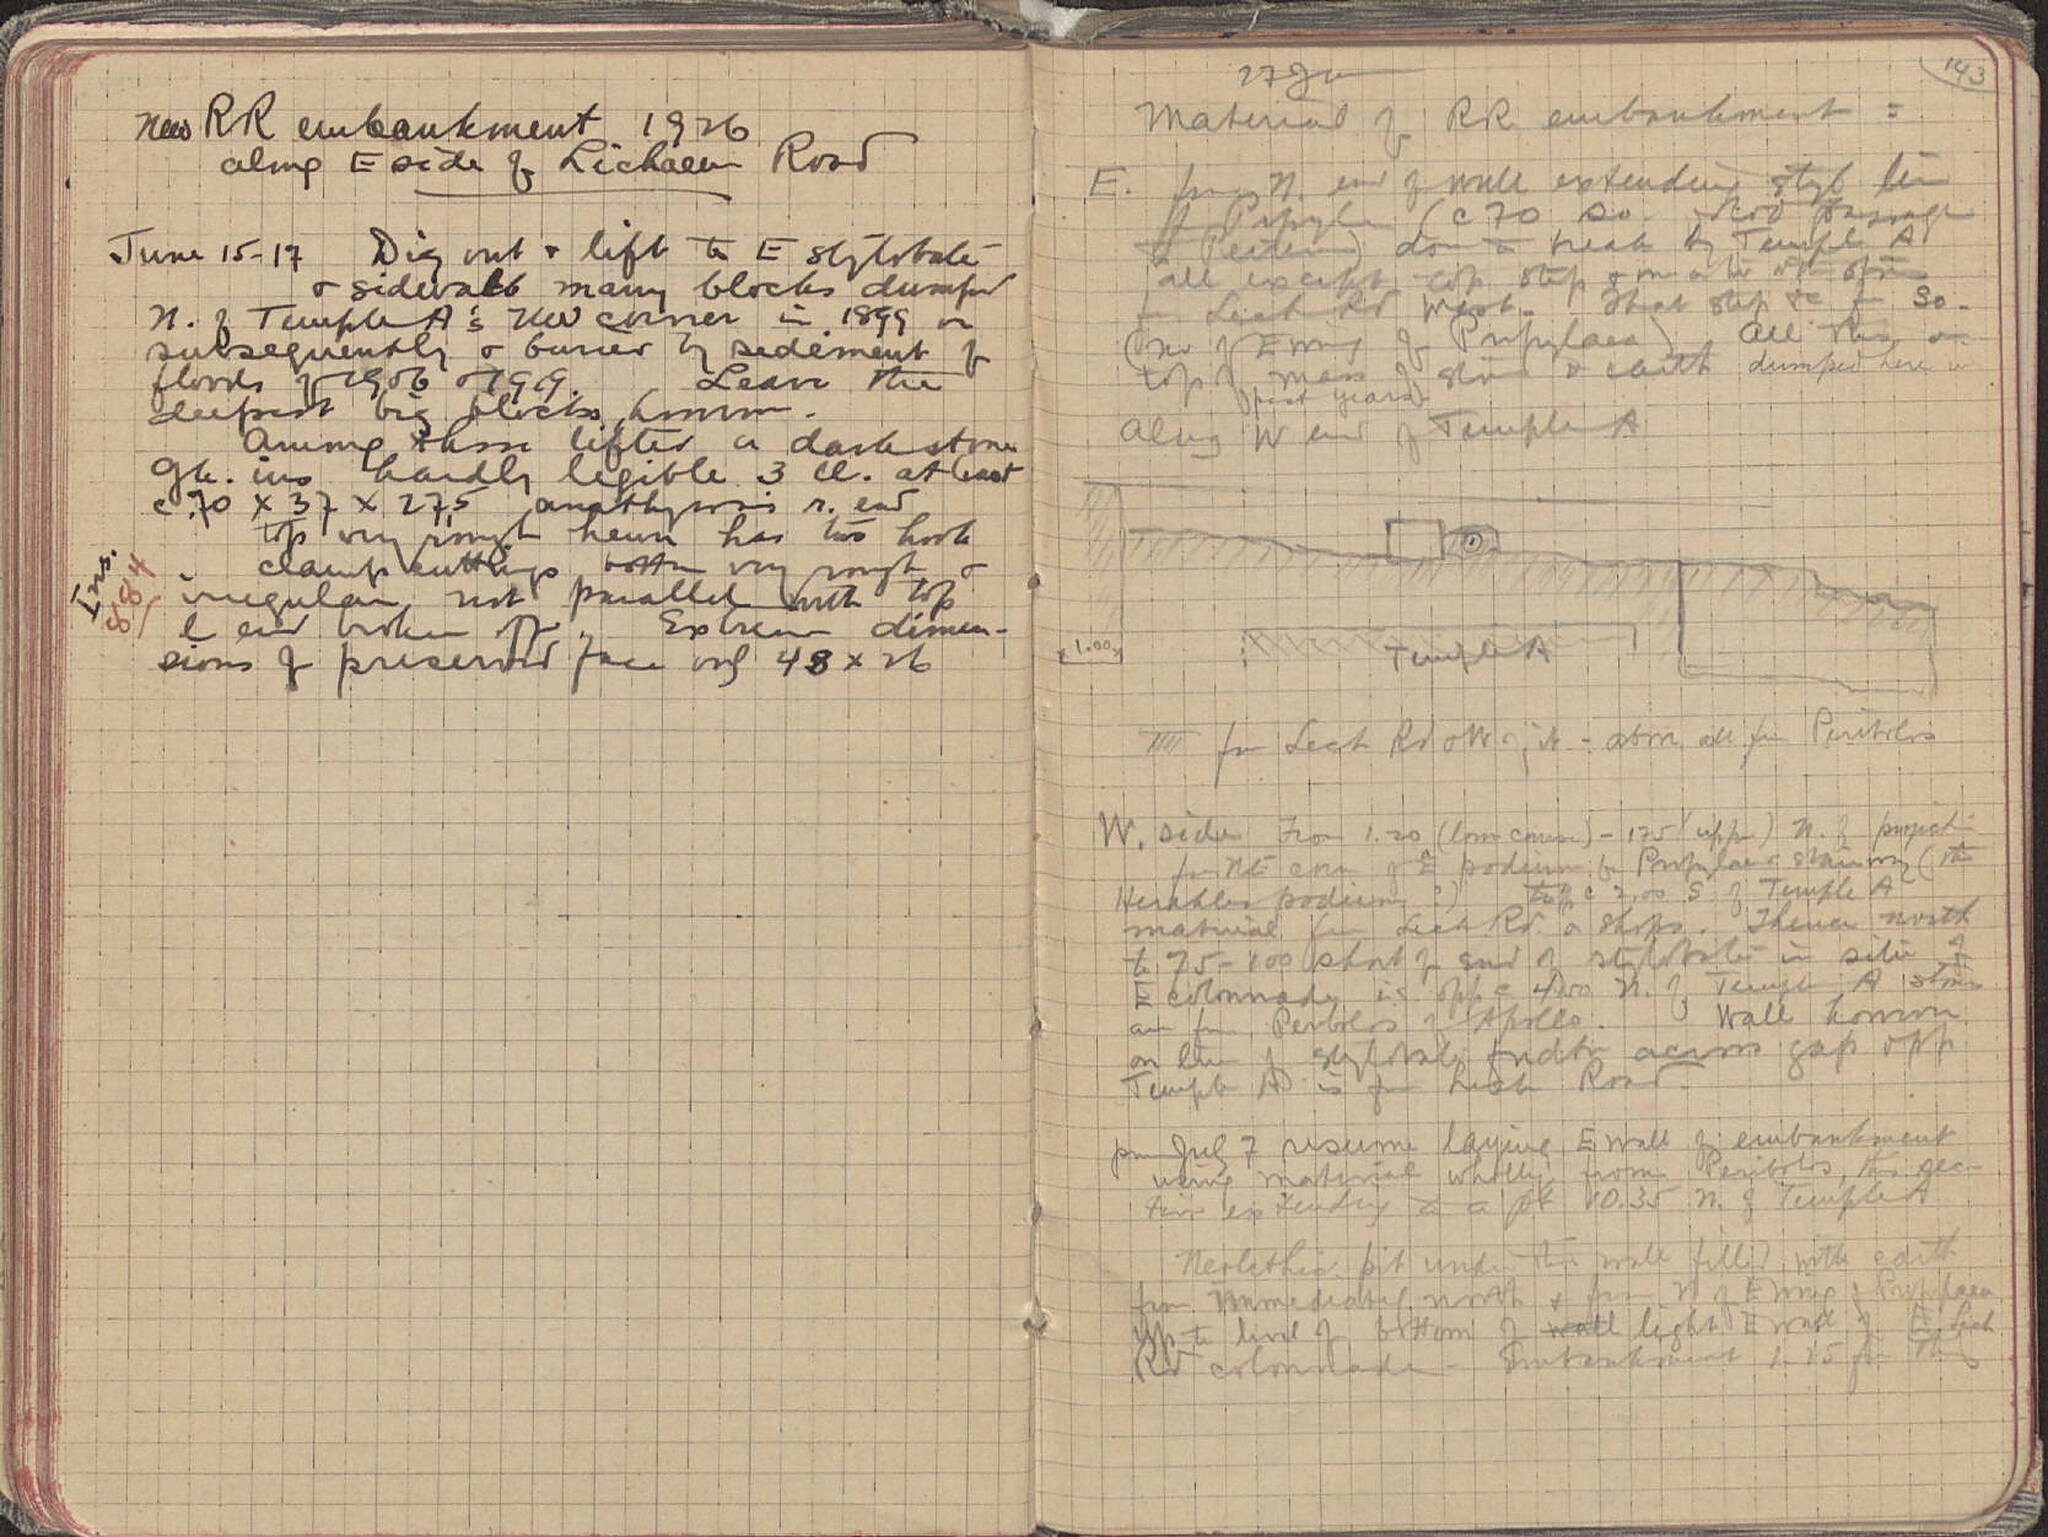 New RR embankment 1926
along E side of Lechaeum Road
June 15-17 Dig out + lift to E stylobate
+ sidewalk many blocks dumped
N. of Temple A's NW corner in 1899 or
subsequently + buried by sediment of
floods of 1906 + 1919. Leave the
deepest big blocks, however.
Among those lifted a dark stone
Gk. ins hardly legible 3 ll. at least
c.70 x 37 x 275 anathyrosis r. end
top very rough hewn has two hook
clamp cuttings bottom very rough +
irregular, not parallel with top
l end broken off. Extreme dimen-
sions of preserved face only 48 x 26
Ins.
884
143
27 Ju
Material of RR embankment =
E. from N. end of wall extending styl line
of Propylaea (c 70 So.
to Peirene) down to break by Temple A
all except top step
Lech Rd West. That step
(No. of E wing of Propylaea) All this on
top of mass of stone & earth dumped here in
past years
Along W end of Temple A
1.00
Temple A
for Lech Rd + W of it - above all for Peribolos
W. side From 1.20 (low course) - 125 (upper) N. of project
for NE corn of E podium for Propylaea stairway (the
Herakles podium?) to c 2.00 S of Temple A
material from Lech Rd + Shops. Thence north
to 75-100 short of end of stylobate in situ of
E colonnade, i.e. opp c 4.00 N. of Temple A stones
are from Peribolos of Apollo. Wall however
on line of stylobate fndtn across gap opp
Temple A is from Lech Road.
pm July 7 resume laying E wall of embankment
using material wholly from Peribolos, this sec-
tion extending to a pt 10.35 N. of Temple A
Neolithic pit under this wall filled with earth
from immediately north + from N of E wing of Propylaea
up to level of bottom of light E wall of E Lech
Rd colonnade - Embankment 1.25